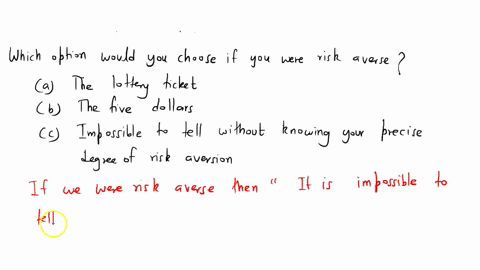 Which option would you choose if you were risk averse?
(a) The lottery ticket
(b) The five dollars
(c) Impossible to tell without knowing your precise
degree of risk aversion
If we were risk averse then " It is impossible to
tell